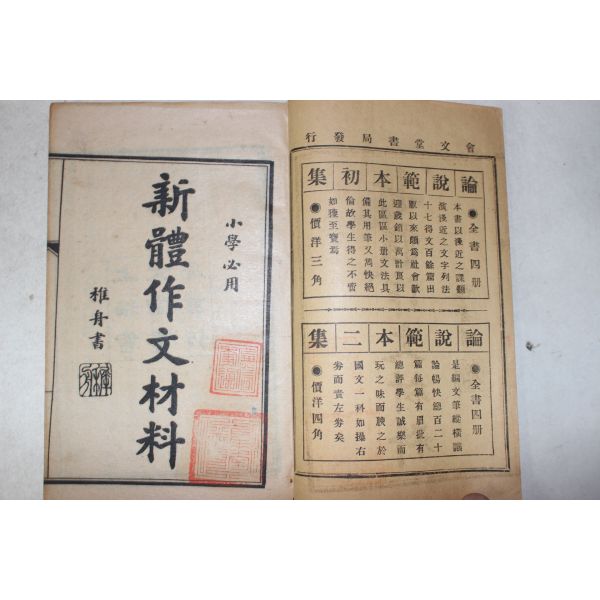 會文堂書局發行
論說範本初集
●全書四册
本書以淺近之課題
演淺近之文字列法
十七得文百餘篇出
版以來頗爲社會歡
迎歲銷以萬計良以
此區區小册文法具
備其用筆又爲快絕
倫故學生得之不啻
如獲至寶焉
●價洋三角
論說範本二集
●全書四册
是編文筆縱橫議
論暢快總百二十
篇每篇有眉批有
總評學生誠樂而
玩之味而腴之於
國文一科如操右
券而責左券矣
●價洋四角
小學必用
新體作文材料
稚舟書